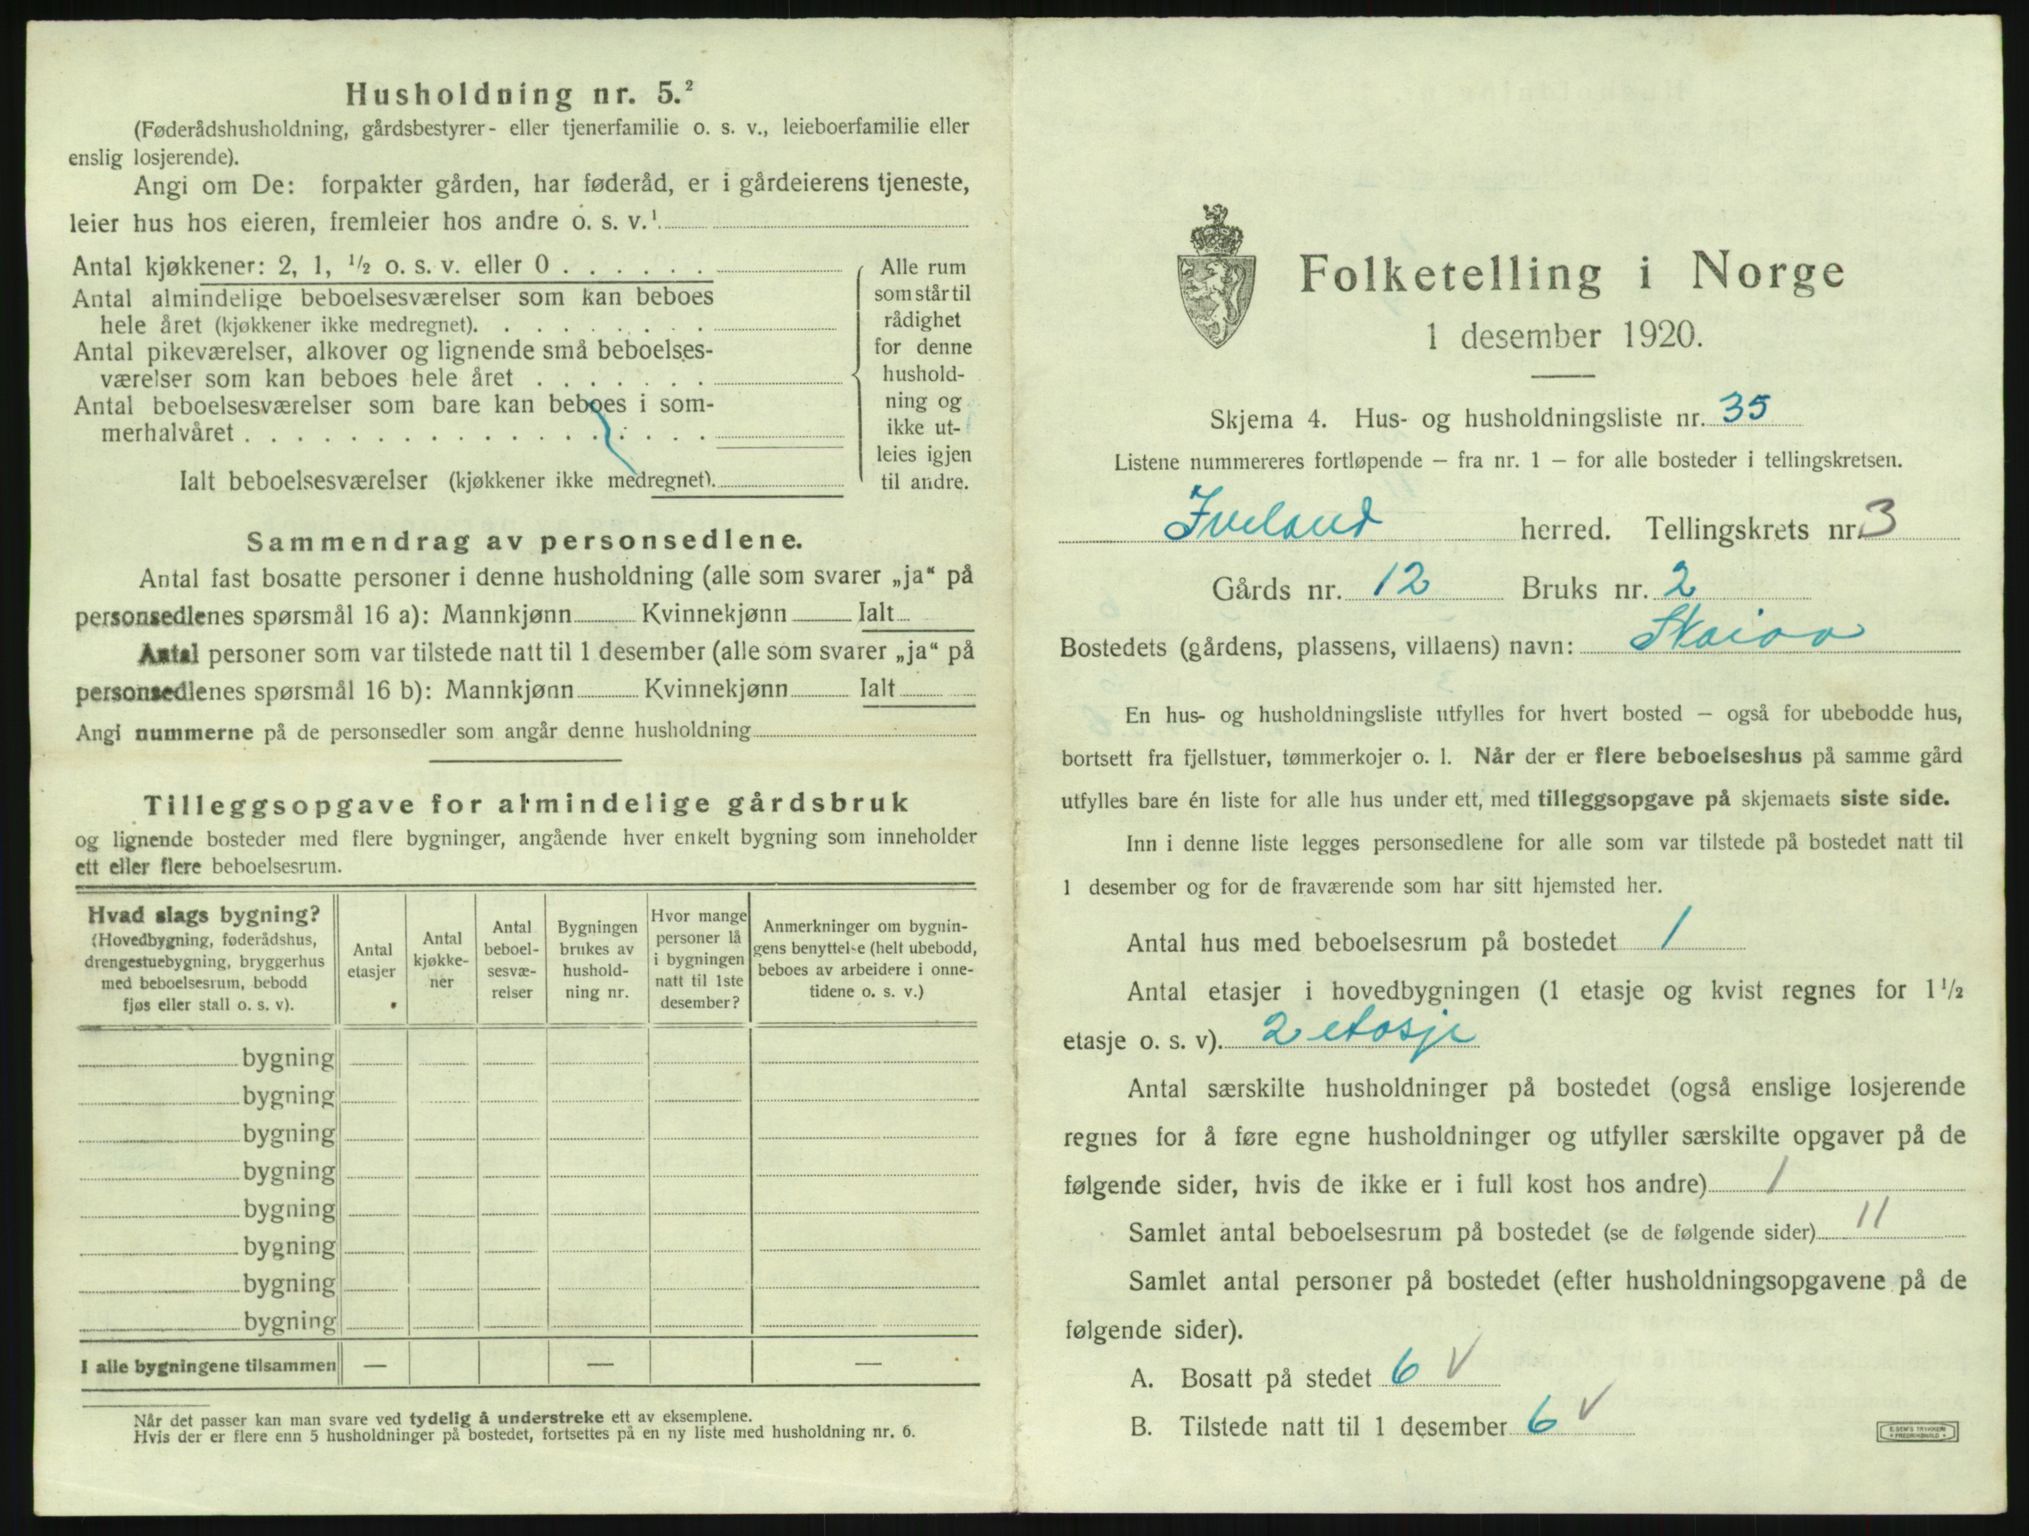 Husholdning nr. 5.²
(Føderådshusholdning, gårdsbestyrer- eller tjenerfamilie o. s. v., leieboerfamilie eller
enslig losjerende).
Angi om De: forpakter gården, har føderåd, er i gårdeierens tjeneste,
leier hus hos eieren, fremleier hos andre o. s. v.¹
Antal kjøkkener: 2, 1, ½ o. s. v. eller 0 . . . . . .
Antal almindelige beboelsesværelser som kan beboes
hele året (kjøkkener ikke medregnet). . . . . . . . .
Antal pikeværelser, alkover og lignende små beboelses-
værelser som kan beboes hele året . . . . . . .
Antal beboelsesværelser som bare kan beboes i som-
merhalvåret . . . . . . . . . . . . . . . . . .
Ialt beboelsesværelser (kjøkkener ikke medregnet).
Alle rum
som står til
rådighet
for denne
hushold-
ning og
ikke ut-
leies igjen
til andre.
Sammendrag av personsedlene.
Antal fast bosatte personer i denne husholdning (alle som svarer „ja“ på
personsedlenes spørsmål 16 a): Mannkjønn Kvinnekjønn Ialt
Antal personer som var tilstede natt til 1 desember (alle som svarer „ja“ på
personsedlenes spørsmål 16 b): Mannkjønn Kvinnekjønn Ialt
Angi nummerne på de personsedler som angår denne husholdning
Tilleggsopgave for almindelige gårdsbruk
og lignende bosteder med flere bygninger, angående hver enkelt bygning som inneholder
ett eller flere beboelsesrum.
Hvad slags bygning?
(Hovedbygning, føderådshus,
drengestuebygning, bryggerhus
med beboelsesrum, bebodd
fjøs eller stall o. s. v).
Antal
etasjer
Antal
kjøkke-
ner
Antal
beboel-
sesvæ-
relser
Bygningen
brukes av
hushold-
ning nr.
Hvor mange
personer lå
i bygningen
natt til 1ste
desember?
Anmerkninger om bygnin-
gens benyttelse (helt ubebodd,
beboes av arbeidere i onne-
tidene o. s. v.)
bygning
bygning
bygning
bygning
bygning
bygning
bygning
bygning
I alle bygningene tilsammen — — —
Når det passer kan man svare ved tydelig å understreke ett av eksemplene.
Hvis der er flere enn 5 husholdninger på bostedet, fortsettes på en ny liste med husholdning nr. 6.
Folketelling i Norge
1 desember 1920.
Skjema 4. Hus- og husholdningsliste nr. 35
Listene nummereres fortløpende – fra nr. 1 – for alle bosteder i tellingskretsen.
Iveland herred. Tellingskrets nr. 3
Gårds nr. 12 Bruks nr. 2
Bostedets (gårdens, plassens, villaens) navn: Skaiaa
En hus- og husholdningsliste utfylles for hvert bosted – også for ubebodde hus,
bortsett fra fjellstuer, tømmerkojer o. l. Når der er flere beboelseshus på samme gård
utfylles bare én liste for alle hus under ett, med tilleggsopgave på skjemaets siste side.
Inn i denne liste legges personsedlene for alle som var tilstede på bostedet natt til
1 desember og for de fraværende som har sitt hjemsted her.
Antal hus med beboelsesrum på bostedet 1
Antal etasjer i hovedbygningen (1 etasje og kvist regnes for 1½
etasje o. s. v). 2 etasje
Antal særskilte husholdninger på bostedet (også enslige losjerende
regnes for å føre egne husholdninger og utfyller særskilte opgaver på de
følgende sider, hvis de ikke er i full kost hos andre) 1
Samlet antal beboelsesrum på bostedet (se de følgende sider) 11
Samlet antal personer på bostedet (efter husholdningsopgavene på de
følgende sider).
A. Bosatt på stedet 6 v
B. Tilstede natt til 1 desember 6 v